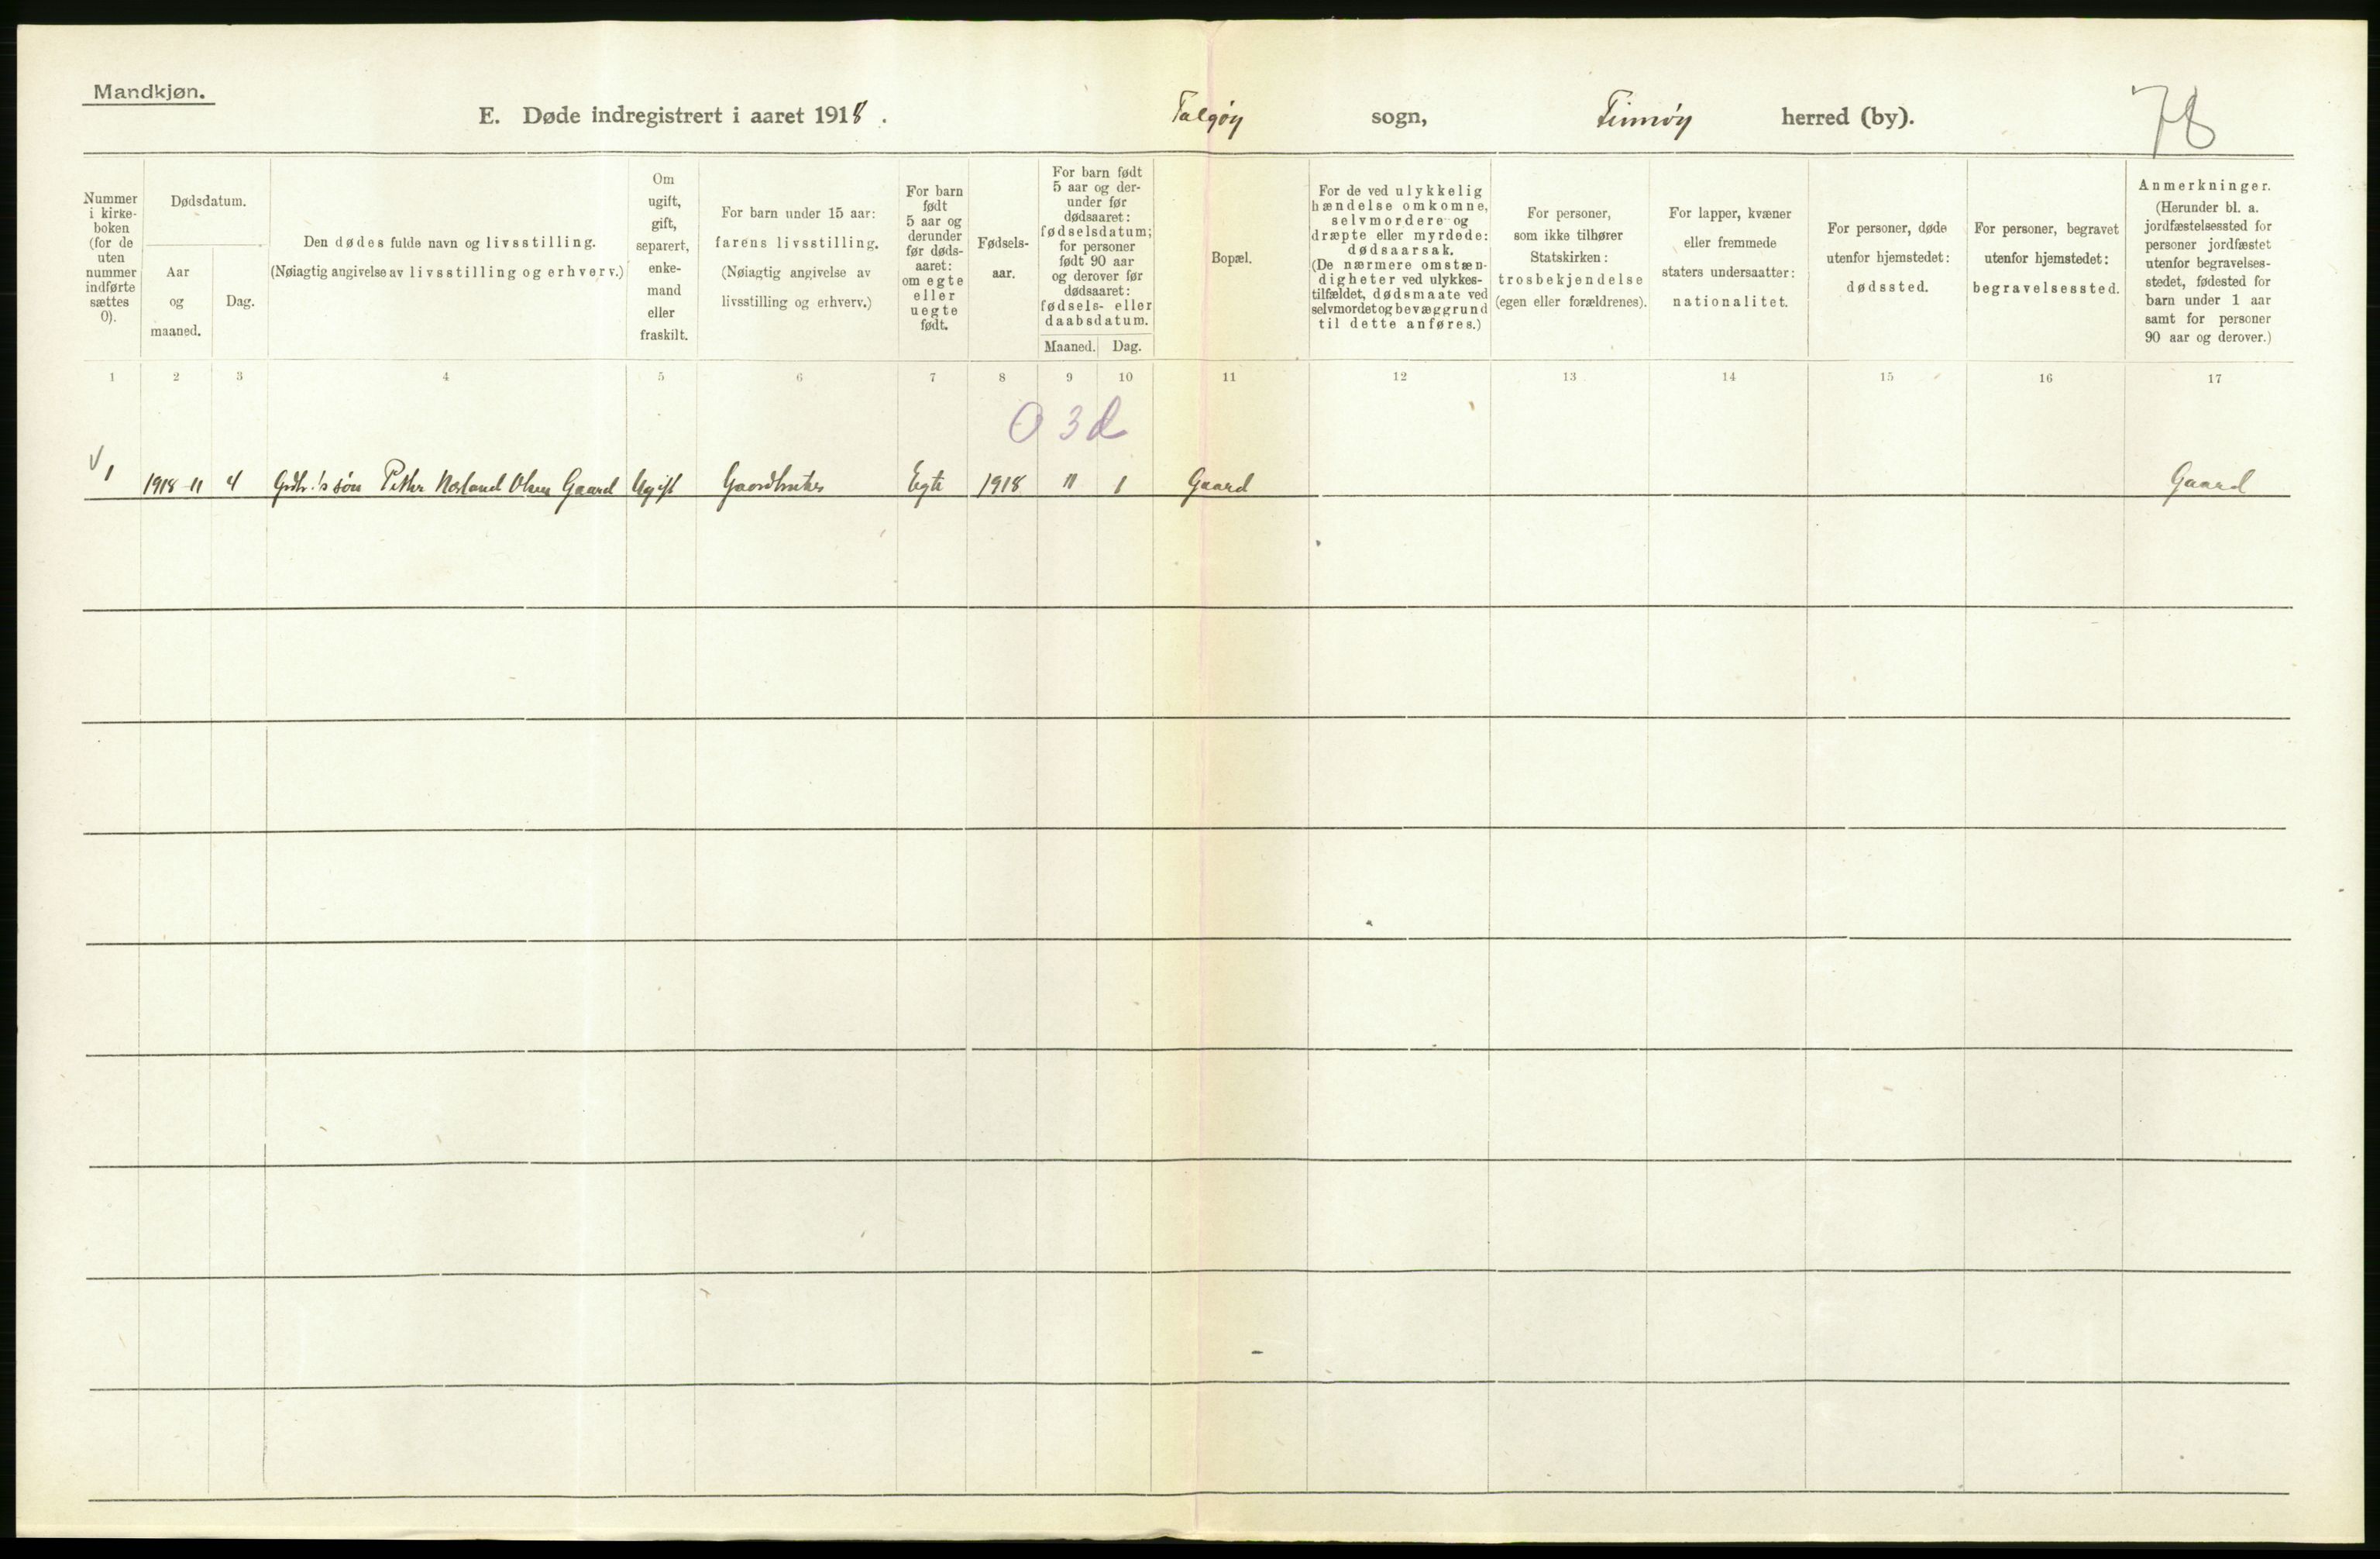 Mandkjøn.
E. Døde indregistrert i aaret 1918. Talgøy sogn, Finnøy herred (by). 78
Nummer i kirke-boken (for de uten nummer indførte sættes 0).
Dødsdatum.
Aar og maaned.
Dag.
Den dødes fulde navn og livsstilling.
(Nøiagtig angivelse av livsstilling og erhverv.)
Om ugift, gift, separert, enke-mand eller fraskilt.
For barn under 15 aar: farens livsstilling.
(Nøiagtig angivelse av livsstilling og erhverv.)
For barn født 5 aar og derunder før døds-aaret: om egte eller uegte født.
Fødsels-aar.
For barn født 5 aar og der-under før dødsaaret: fødselsdatum; for personer født 90 aar og derover før dødsaaret: fødsels- eller daabsdatum.
Maaned. Dag.
Bopæl.
For de ved ulykkelig hændelse omkomne, selvmordere og dræpte eller myrdede: dødsaarsak.
(De nærmere omstæn-digheter ved ulykkes-tilfældet, dødsmaate ved selvmordet og bevæggrund til dette anføres.)
For personer, som ikke tilhører Statskirken: trosbekjendelse (egen eller forældrenes).
For lapper, kvæner eller fremmede staters undersaatter: nationalitet.
For personer, døde utenfor hjemstedet: dødssted.
For personer, begravet utenfor hjemstedet: begravelsessted.
Anmerkninger.
(Herunder bl. a. jordfæstelsessted for personer jordfæstet utenfor begravelses-stedet, fødested for barn under 1 aar samt for personer 90 aar og derover.)
1 2 3 4 5 6 7 8 9 10 11 12 13 14 15 16 17
0 3 d
1 1918 11 4 Gdbr.'s søn Petter Olsen Gaard Ugift Gaardbruker Egte 1918 11 1 Gaard Gaard